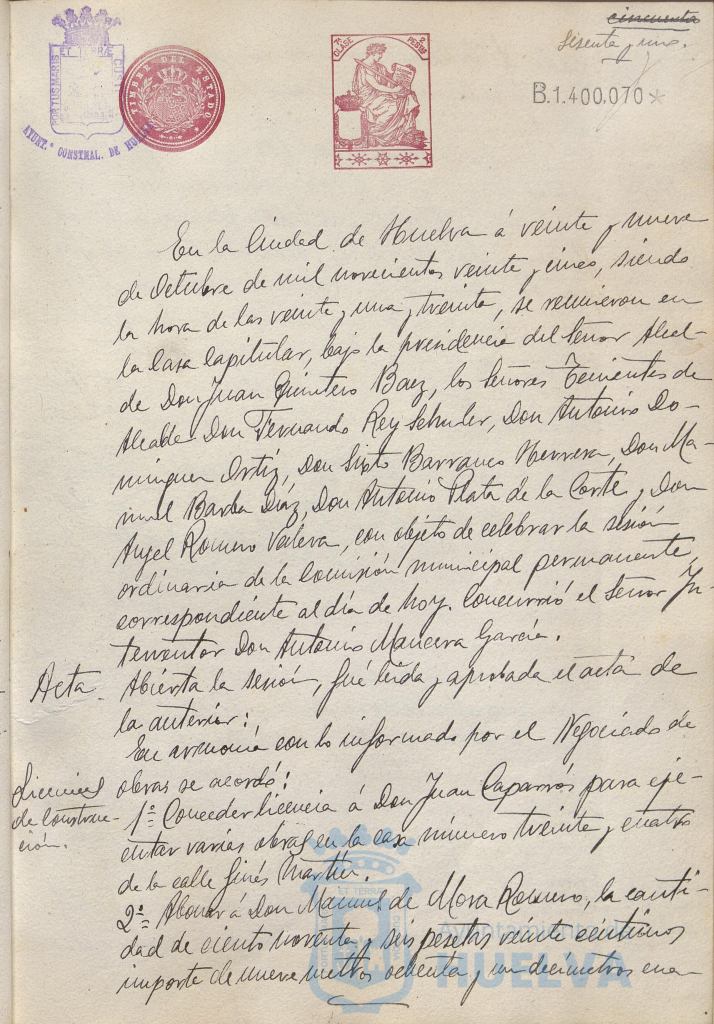 cincuenta
Sesenta y uno.
PORTUS MARIS ET TERRÆ CUSTODIA
AYUNT.º CONSTNAL. DE HUELVA
TIMBRE DEL ESTADO
7ª CLASE PESETAS
B.1.400.070*
En la Ciudad de Huelva á veinte y nueve
de Octubre de mil novecientos veinte y cinco, siendo
la hora de las veinte y una y treinta, se reunieron en
la Casa Capitular, bajo la presidencia del Señor Alcal-
de Don Juan Quintero Baez, los Señores Tenientes de
Alcalde Don Fernando Rey Schuler, Don Antonio Do-
minguez Ortiz, Don Sixto Barranco Herrera, Don Ma-
nuel Barba Diaz, Don Antonio Plata de la Corte y Don
Angel Romero Valera, con objeto de celebrar la sesión
ordinaria de la Comisión municipal permanente,
correspondiente al día de hoy. Concurrió el Señor In-
terventor Don Antonio Mancera García.
Acta. Abierta la sesión, fué leida y aprobada el acta de
la anterior:
En armonía con lo informado por el Negociado de
Licencias de construc-
ción.
obras se acordó:
1º= Conceder licencia á Don Juan Caparrós para eje-
cutar varias obras en la casa número treinta y cuatro
de la calle Ginés Martín.
2º= Abonar á Don Manuel de Mora Romero, la canti-
dad de ciento noventa y seis pesetas veinte centimos
importe de nueve metros ochenta y un decímetros cua-
Ayuntamiento de
HUELVA